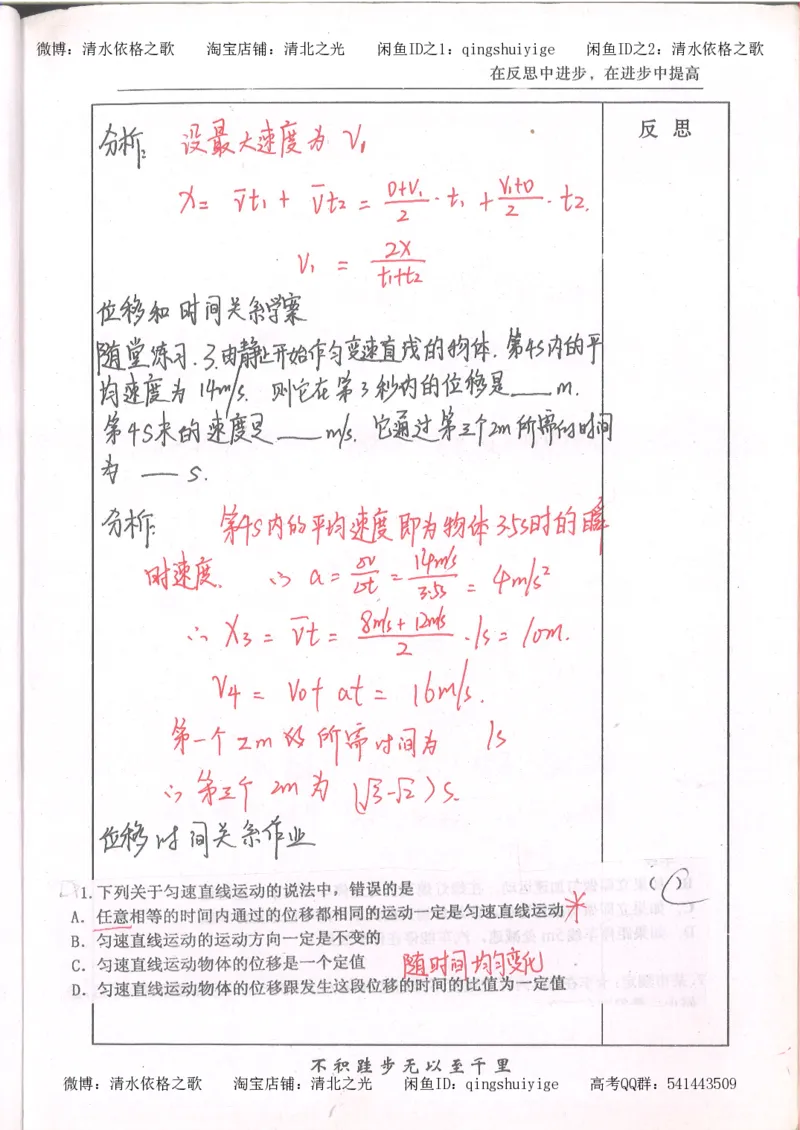 微博：清水依格之歌 淘宝店铺：清北之光 闲鱼ID之1：qingshuiyige 闲鱼ID之2：清水依格之歌
在反思中进步，在进步中提高
反 思
分析： 设最大速度为 V₁
x = v̅t₁ + v̅t₂ = (0+V₁)/2 · t₁ + (V₁+0)/2 · t₂.
V₁ = 2x/(t₁+t₂)
位移和时间关系学案
随堂练习.3.由静止开始作匀变速直线的物体.第4s内的平
均速度为14m/s. 则它在第3秒内的位移是___m.
第4s末的速度是___m/s. 它通过第三个2m所需的时间
为 __ s.
分析： 第4s内的平均速度即为物体3.5s时的瞬
时速度. ∴ a = Δv/Δt = 14m/s/3.5s = 4m/s²
∴ X₃ = v̅t = (8m/s+12m/s)/2 · 1s = 10m.
V₄ = V₀+at = 16m/s.
第一个2m 所需时间为 1s
∴ 第三个2m为 (√3-√2)s.
位移时间关系作业
1.下列关于匀速直线运动的说法中，错误的是 (C)
A．任意相等的时间内通过的位移都相同的运动一定是匀速直线运动
B．匀速直线运动的运动方向一定是不变的
C．匀速直线运动物体的位移是一个定值 随时间均匀变化
D．匀速直线运动物体的位移跟发生这段位移的时间的比值为一定值
不积跬步无以至千里
微博：清水依格之歌 淘宝店铺：清北之光 闲鱼ID：qingshuiyige 高考QQ群：541443509